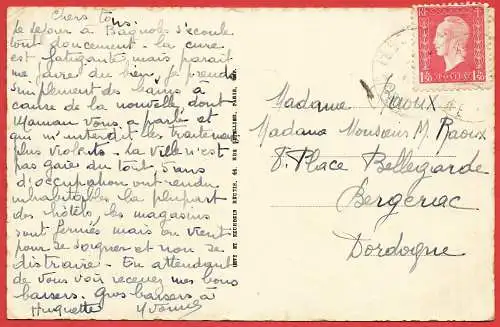 Chers tous.
Le séjour à Bagnols s'écoule
tout doucement. La cure
est fatigante mais parait
me faire du bien, je prends
simplement des bains à
cause de la nouvelle dont
Maman vous a parlé et
qui m'interdit les traitements
plus violents. La ville n'est
pas gaie du tout, 5 ans
d'occupation ont rendu
inhabitables la plupart
des hôtels, les magasins
sont fermés mais on vient
pour se soigner et non se
distraire. En attendant
de vous voir recevez mes bons
baisers. Gros baisers à
Huguette Yvonne
Madame Raoux
Madame Monsieur M. Raoux
8. Place Bellegarde
Bergerac
Dordogne
POSTES